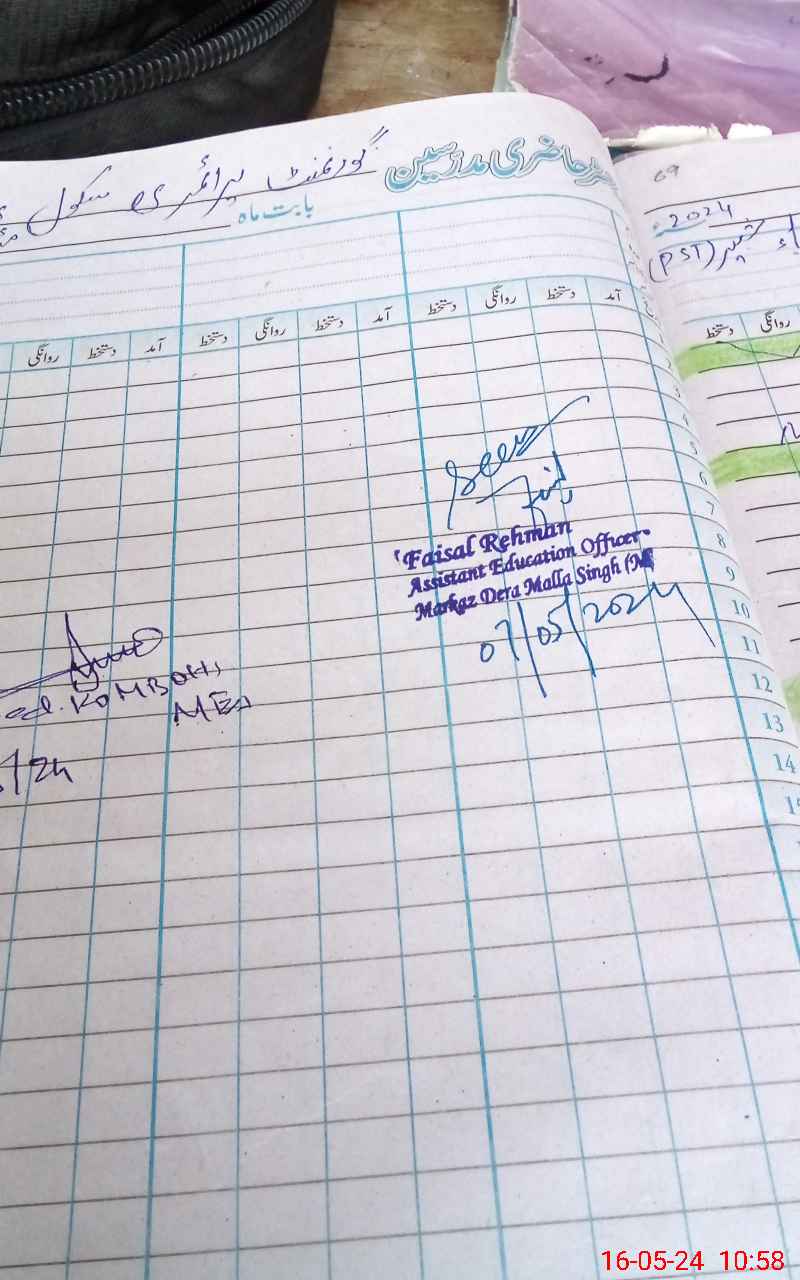 حاضری مدرسین
گورنمنٹ پرائمری سکول
بابت ماہ
آمد دستخط روانگی دستخط آمد دستخط روانگی دستخط آمد دستخط روانگی
Seen
Faisal Rehman
Assistant Education Officer
Markaz Dera Malla Singh (M
07/05/2024
KOMBOH,
MEA
/24
69
2024ء
(PST)
روانگی دستخط
4
5
6
7
8
9
10
11
12
13
14
16-05-24 10:58